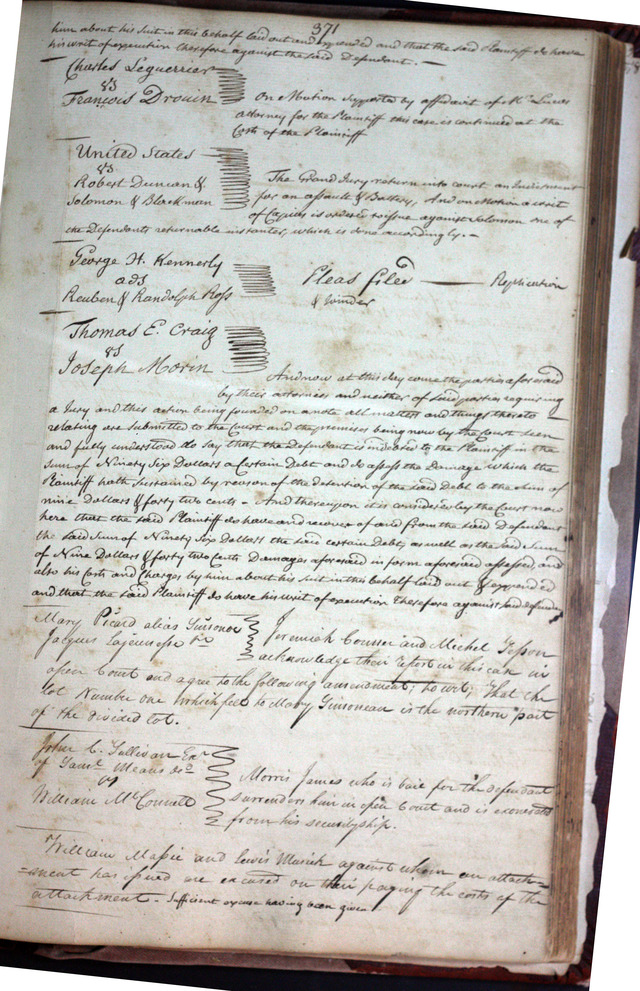 371
him about his Suit in this behalf laid out and expended and that the said Plaintiff do have
his writ of execution therefore against the said Defendant. —
Charles Leguerrier
vs
François Drouin
On Motion Supported by affidavit of Mr. Lucas
attorney for the Plaintiff this case is continued at the
Costs of the Plaintiff
United States
vs
Robert Duncan &
Solomon & Blackman
The Grand Jury return into court an Indictment
for an assault & Battery, And on Motion a writ
of Capias is ordered to issue against Solomon one of
the Defendants returnable instanter, which is done accordingly. —
George H. Kennerly
ads
Reuben & Randolph Ross
Pleas filed — Replication
& Joinder
Thomas E. Craig
vs
Joseph Morin
And now at this day come the parties aforesaid
by their attornies and neither of said parties requiring
a Jury and this action being founded on a note all matters and things thereto
relating are submitted to the Court and the premises being now by the Court seen
and fully understood do say that the Defendant is indebted to the Plaintiff in the
Sum of Ninety Six Dollars a certain Debt and do assess the Damage which the
Plaintiff hath sustained by reason of the detention of the said Debt to the Sum of
nine Dollars & forty two cents – And thereupon it is considered by the Court now
here that the said Plaintiff do have and recover of and from the said Defendant
the said Sum of Ninety Six Dollars the said certain Debt, as well as the said Sum
of Nine Dollars & forty two Cents Damages aforesaid in form aforesaid assessed and
also his Costs and Charges by him about his Suit in this behalf laid out & expended
and that the said Plaintiff do have his writ of execution Therefore against said defendant
Mary Picard alias
Jacques Lajeunesse
Jeremiah Connor and Michel Tesson
acknowledge their report in this case in
open Court and agree to the following amendment; to wit; That the
lot Number one which fell to Mary Ginsoneau is the northern part
of the divided lot.
John C. Sullivan Exr.
of Saml. Means decd
vs
William McConnell
Morris James who is bail for the defendant
surrenders him in open Court and is exonerated
from his securityship.
William Massie and Lewis Musick against whom an attach=
=ment has issued are excused on their paying the costs of the
attachment – Sufficient excuse having been given.